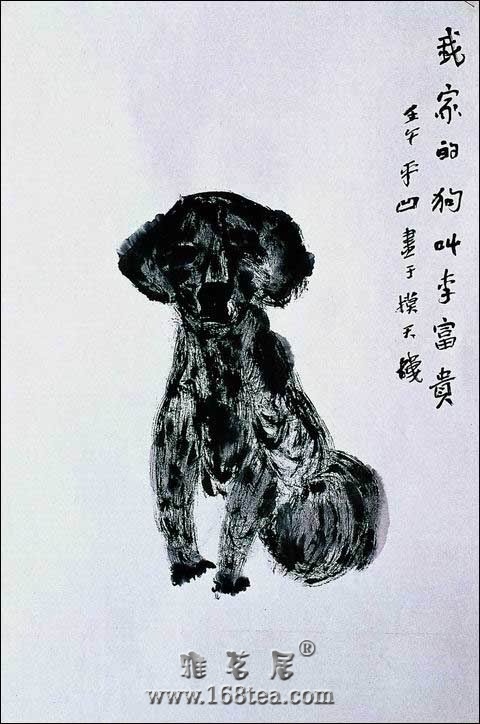 我家的狗叫李富貴
壬午平凹畫于撲天機
雅茗居®
www.168tea.com